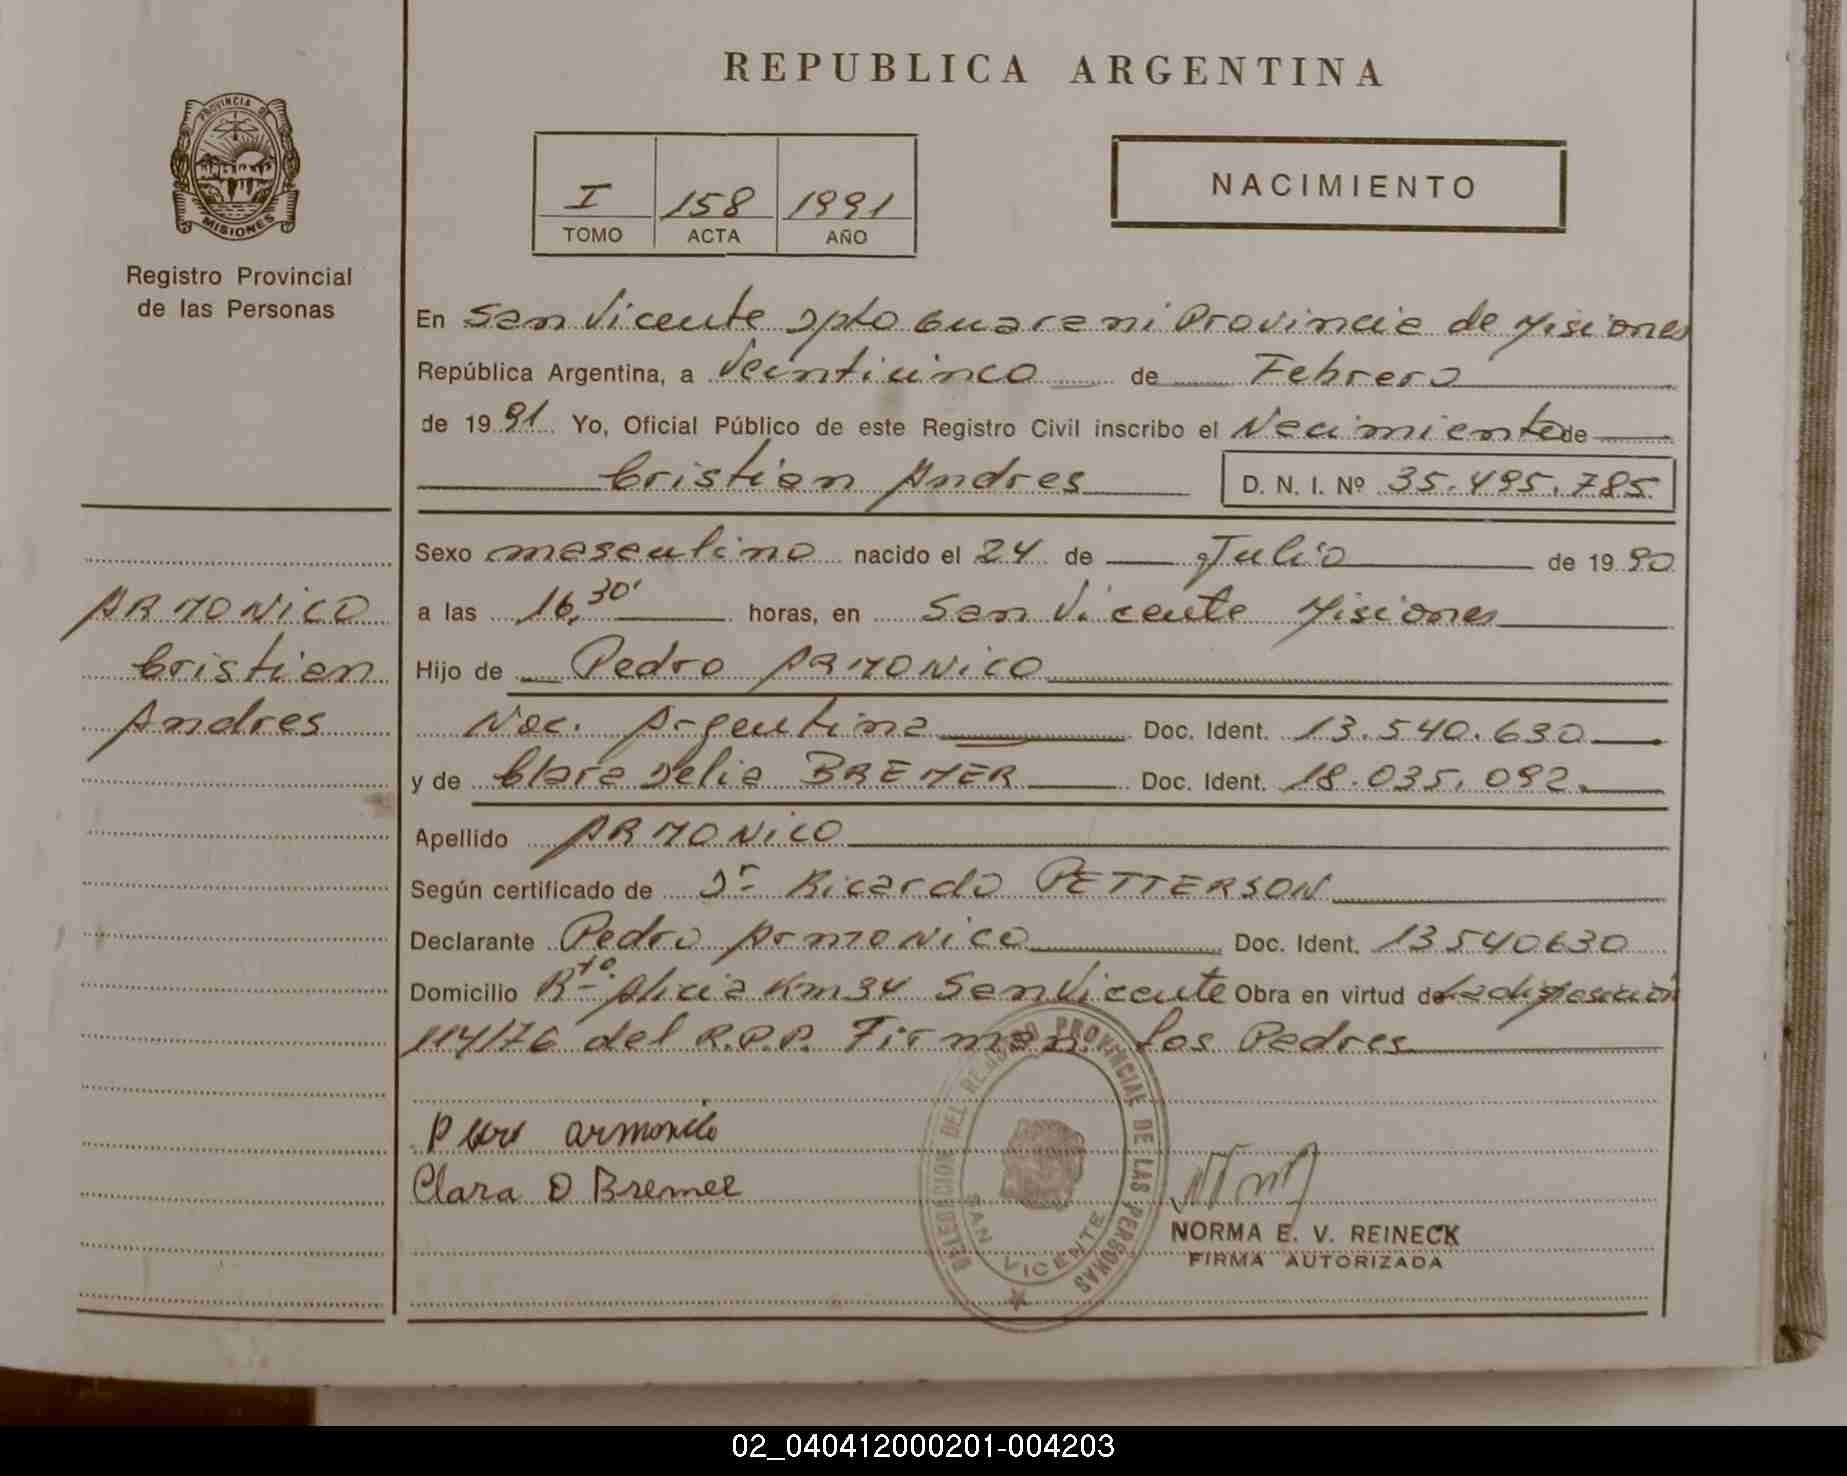 REPUBLICA ARGENTINA
PROVINCIA DE
MISIONES
Registro Provincial
de las Personas
I 158 1991
TOMO ACTA AÑO
NACIMIENTO
En San Vicente Dpto Guarani Provincia de Misiones
República Argentina, a Veinticinco de Febrero
de 1991 Yo, Oficial Público de este Registro Civil inscribo el Nacimiento de
Cristian Andres D. N. I. Nº 35.495.785
Sexo masculino nacido el 24 de Julio de 1990
a las 16,30' horas, en San Vicente Misiones
Hijo de Pedro ARMONICO
Nac. Argentina Doc. Ident. 13.540.630
y de Clara Delia BREMER Doc. Ident. 18.035.092.
Apellido ARMONICO
Según certificado de Dr Ricardo PETTERSON
Declarante Pedro ARMONICO Doc. Ident. 13540630
Domicilio Rto. Alicia Km34 San Vicente Obra en virtud de La disposición
114/76 del R.P.P. Firman los Padres
ARMONICO
Cristian
Andres
armonico
Clara D Bremer
DELEGACION DEL REGISTRO PROVINCIAL DE LAS PERSONAS
SAN VICENTE
NORMA E. V. REINECK
FIRMA AUTORIZADA
02_040412000201-004203